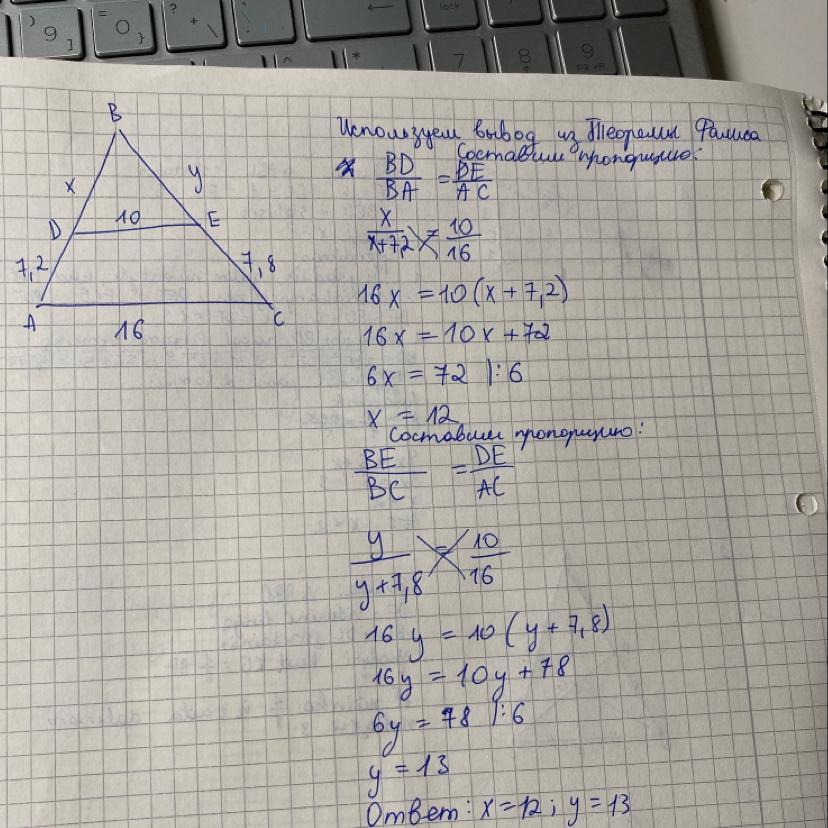 B
x
y
D
10
E
7,2
7,8
A
16
C
Используем вывод из Теоремы Фалиса
Составим пропорцию:
BD/BA = DE/AC
x/x+7,2 = 10/16
16x = 10(x+7,2)
16x = 10x+72
6x = 72 |:6
x = 12
Составим пропорцию:
BE/BC = DE/AC
y/y+7,8 = 10/16
16y = 10(y+7,8)
16y = 10y+78
6y = 78 |:6
y = 13
Ответ: x=12; y=13
) 9 ]
= 0 }
? + \
lock
*
^
7
8
9